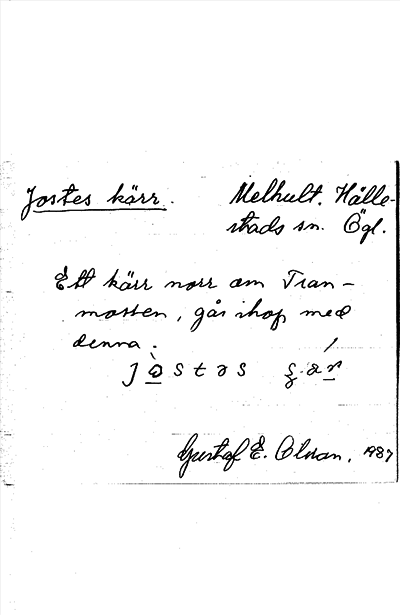 Jostes kärr. Melhult. Hälle-
stads sn. Ögl.
Ett kärr norr om Tran-
mossen, går ihop med
denna.
Gustaf E. Olsson. 1937